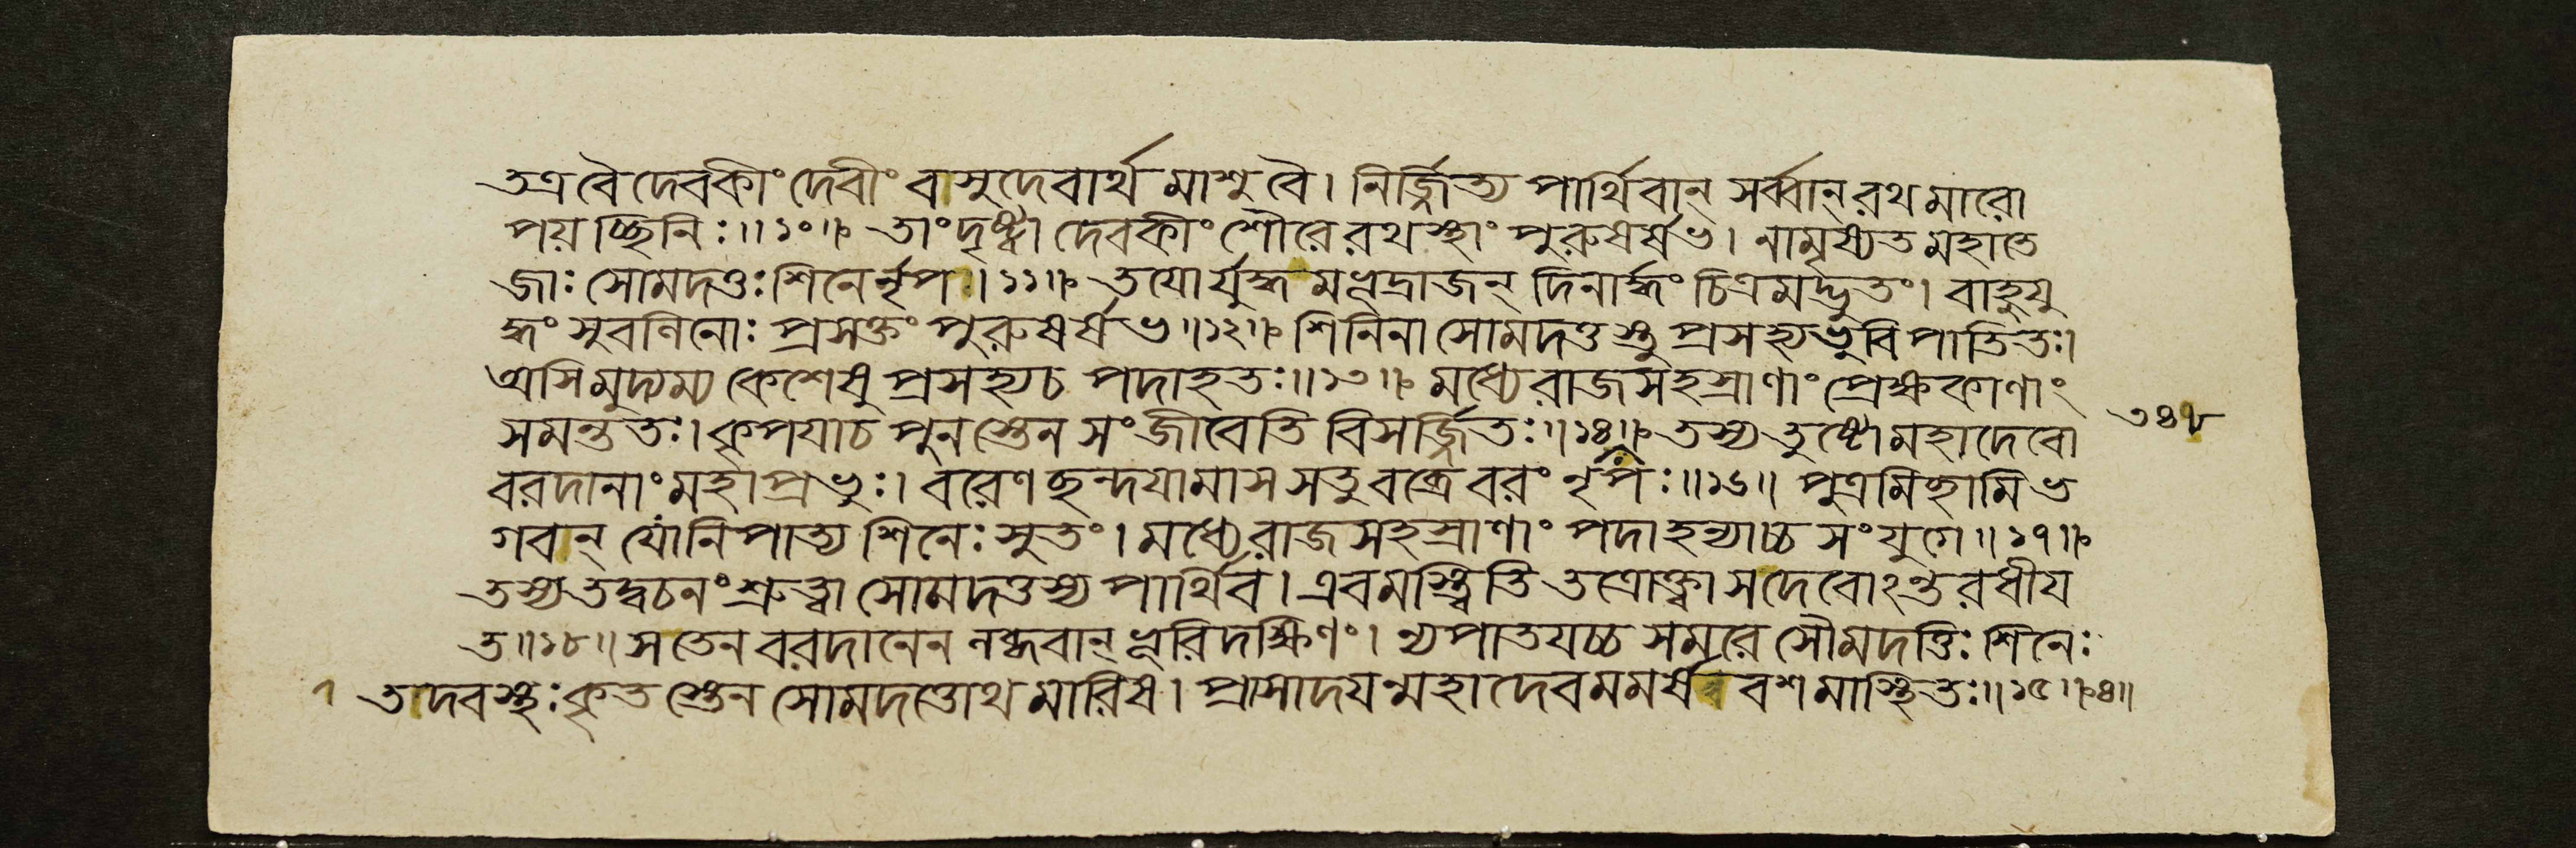 তত্র বৈ দেবকীং দেবীং বাসুদেবার্থ মাশু বৈ। নির্জ্জিত্য পার্থিবান্ সর্ব্বান্ রথ মারো
পয়চ্ছিনিঃ॥১০॥ তাং দৃষ্ট্বা দেবকীং শৌরে রথস্থাং পুরুষর্ষভ। নামৃষ্যত মহাতে
জাঃ সোমদত্তঃ শিনের্নৃপ॥১১॥ তযোর্যুদ্ধ মভূদ্রাজন্ দিনার্দ্ধং চিত্রমদ্ভুতং। বাহুযু
দ্ধং সুবলিনোঃ প্রসক্তং পুরুষর্ষভ॥১২॥ শিনিনা সোমদত্তস্তু প্রসহ্য ভুবি পাতিতঃ।
অসিমুদ্যম্য কেশেষু প্রসহ্য চ পদাহতঃ॥১৩॥ মধ্যে রাজসহস্রাণাং প্রেক্ষকাণাং
সমন্ততঃ। কৃপযা চ পুনস্তেন সংজীবেতি বিসর্জ্জিতঃ॥১৪॥ তস্য তুষ্টো মহাদেবো
৩৪৮
বরদানাং মহাপ্রভুঃ। বরেণ ছন্দযামাস স তু বব্রে বরং নৃপঃ॥১৬॥ পুত্রমিচ্ছামি ভ
গবান্ যোনিপাত্য শিনেঃ সুতং। মধ্যে রাজসহস্রাণাং পদাহন্যাচ্চ সংযুগে॥১৭॥
তস্য তদ্বচনং শ্রুত্বা সোমদত্তস্য পার্থিব। এবমস্ত্বিতি তত্রোক্ত্বা স দেবোঽন্তরধীয
ত॥১৮॥ স তেন বরদানেন লব্ধবান্ ভূরিদক্ষিণং। ন্যপাতযচ্চ সমরে সৌমদত্তিঃ শিনেঃ
৭ তদবস্থঃ কৃতস্তেন সোমদত্তোথ মারিষ। প্রাসাদযন্মহাদেবমমর্ষ বশমাস্থিতঃ॥১৫॥৪॥